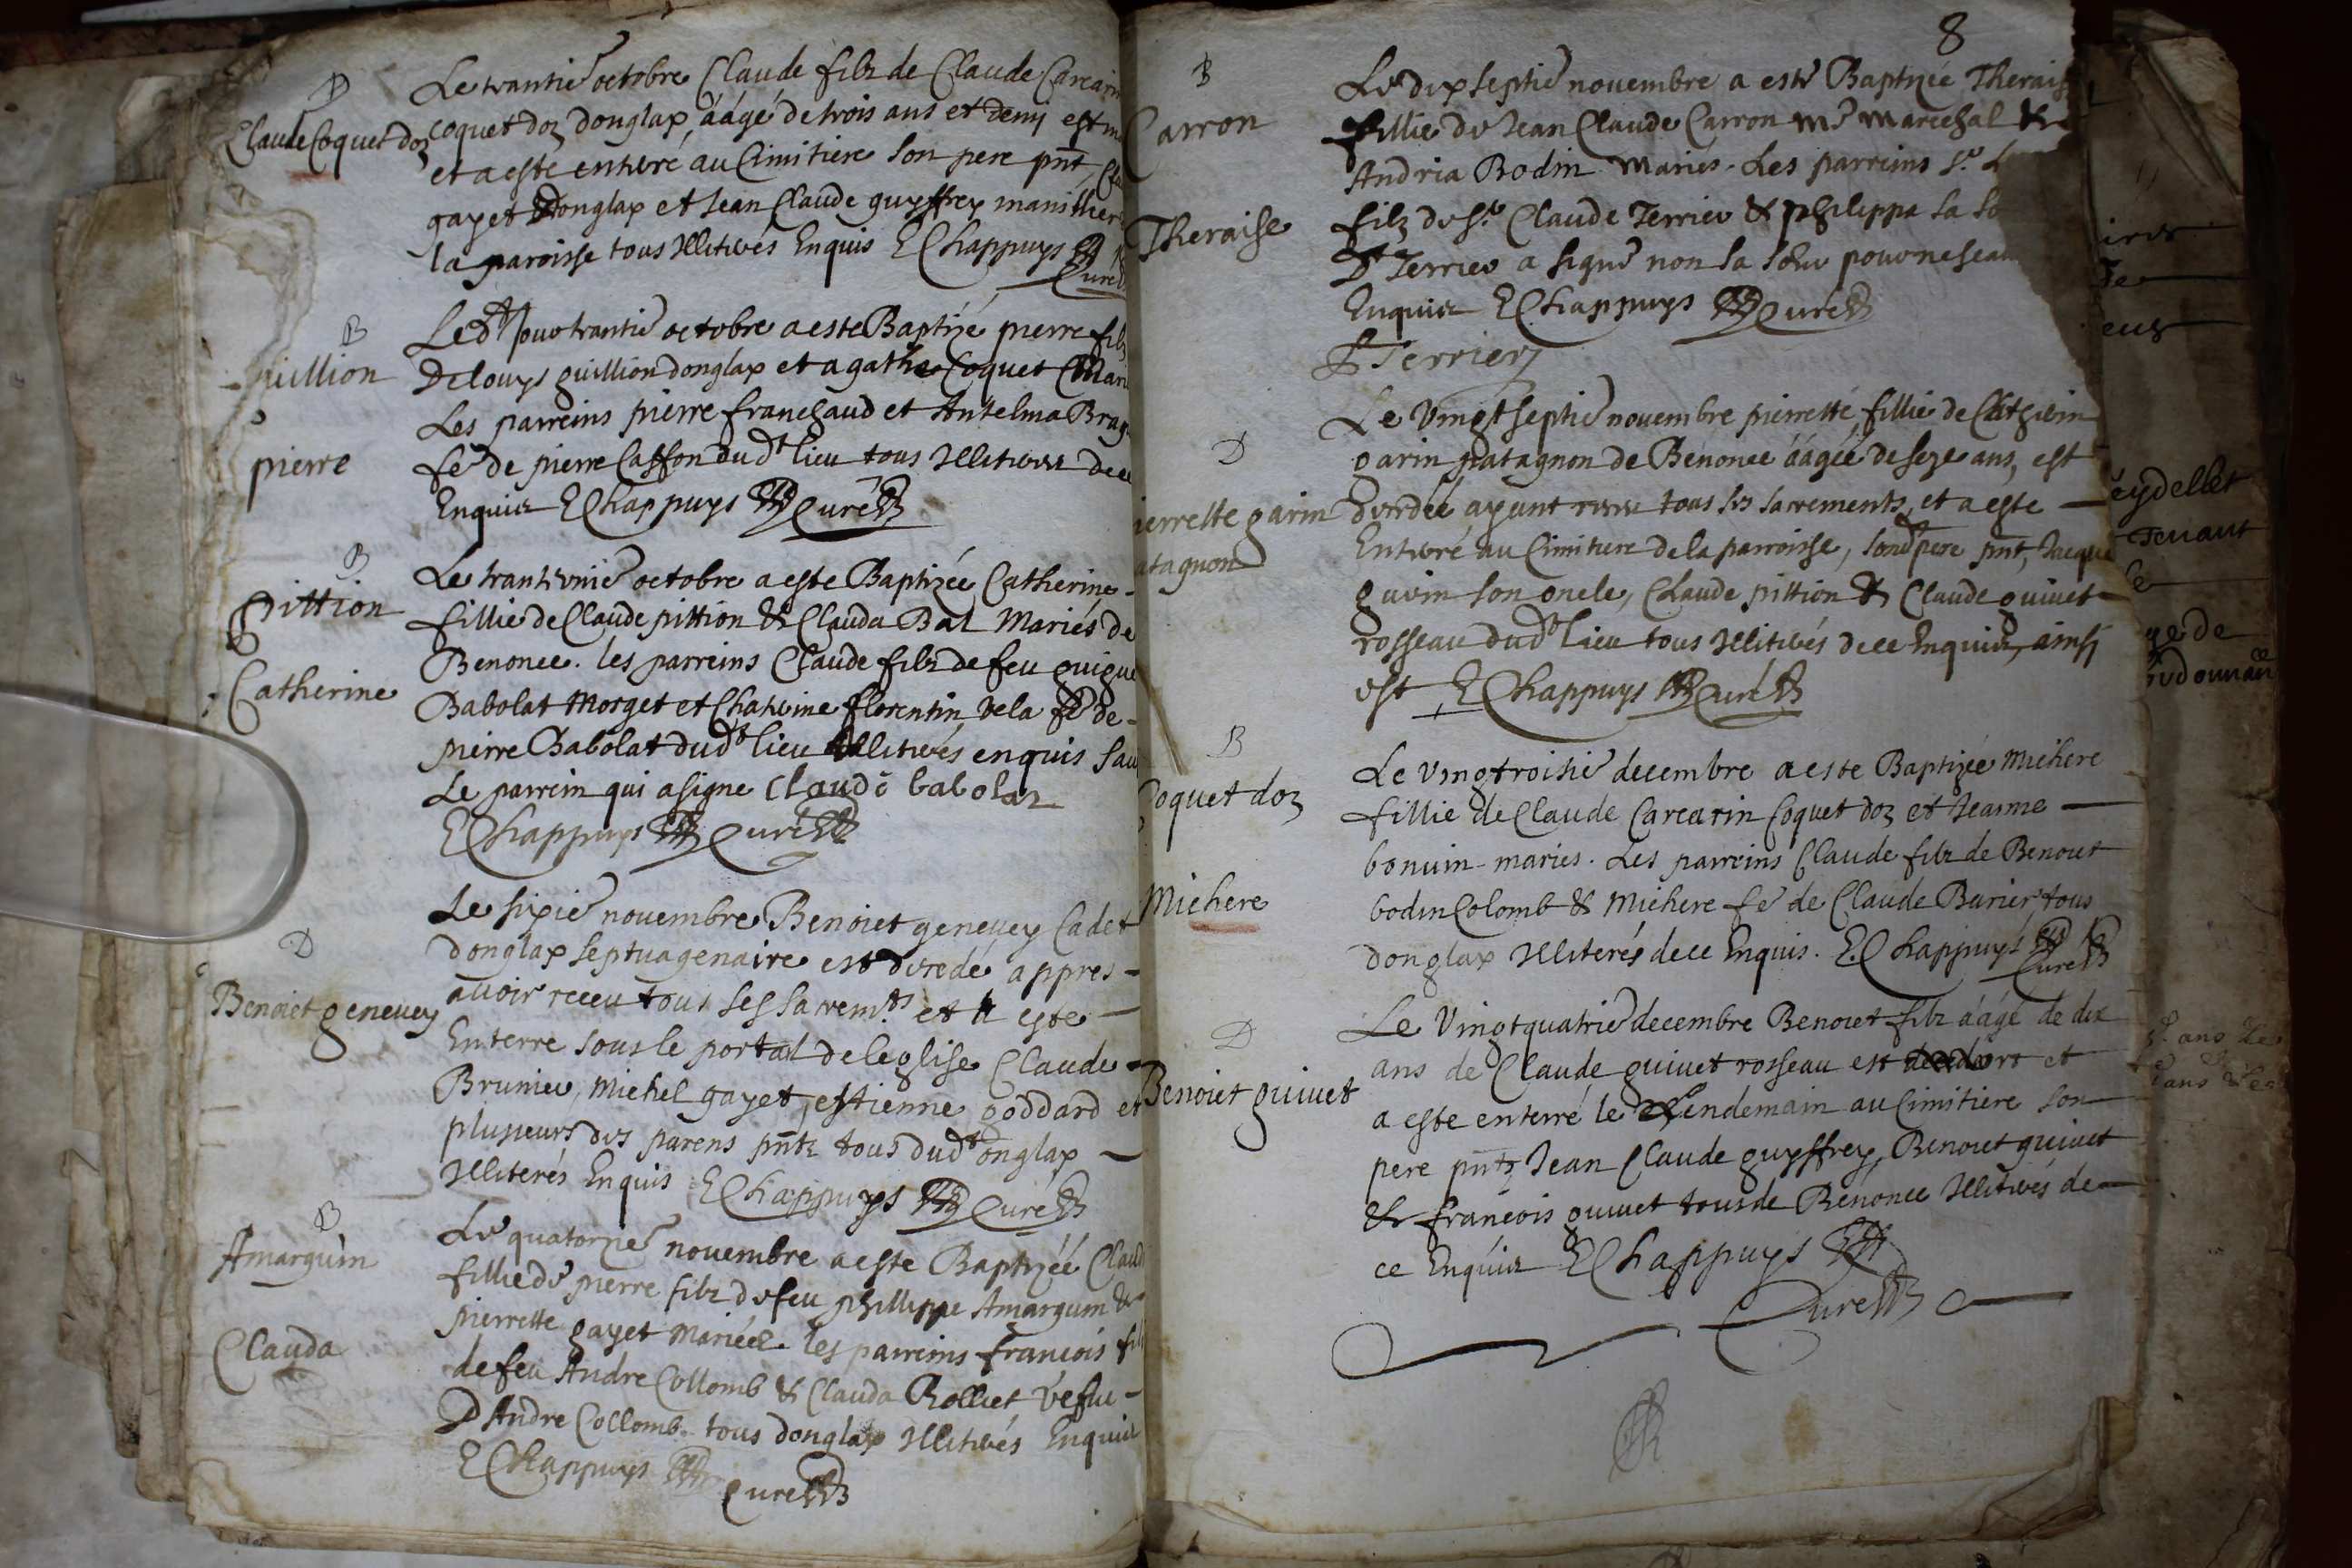 D
Claude Coquet doz
Le trantie octobre Claude filz de Claude Carcarin
coquet doz donglax, áágé de trois ans et demy est
et a este enterré au Cimitiere son pere pnt,
gayet Donglax et Jean Claude guyffrey manillier
la parroisse tous Illiterés Enquis E Chappuys
Curé
B
guillion
pierre
Led^t jour trantie octobre a este Baptizé pierre filz
De louys guillion donglax et agathe Coquet Mari
Les parreins pierre franchaud et Antelma
fe de pierre Casson dud^t lieu tous Illiterez de ce
Enquiz E Chappuys Curé
B
Pittion
Catherine
Le trantunie octobre a este Baptizée Catherine
fillie de Claude pittion & Clauda Bal Mariés de
Benonce. les parreins Claude filz de feu guigue
Babolat Morget et Chaterine florentin rela fe de
pierre Babolat dud^t lieu Illiterés enquis sau
Le parrein qui a signe Claude babolaz
E Chappuys Curé
D
Benoiet genevey
Le sixie novembre Benoiet genevey Cadet
donglax septuagenaire est decedé appres
avoir receu tous ses sacrem^ts et a este
Enterre sous le portal de leglise Claude
Brunier, Michel gayet, estienne goddard et
plusieurs des parens pntz tous dud^t onglax
Illiterés Enquis E Chappuys Curé
B
Amarguin
Clauda
Le quatorzie novembre a este Baptizéé Claud
fillie de pierre filz de feu phillippe Amarguin &
pierrette gayet Mariéez. les parreins francois fil
de feu Andre Collomb & Clauda Rolliet vefue
D Andre Collomb tous donglax Illiterés Enquiz
E Chappuys Curé
8
B
Carron
Theraise
Le dix septie novembre a este Baptizée Therais
fillie de Jean Claude Carron M^e Marechal &
Andria Bodin Mariés. Les parreins S^r
filz de S^r Claude Terrier & philippa sa so
D^t Terrier a signé non sa soeur pour ne
Enquiz E Chappuys Curé
Terrier
D
ierrette garin
atagnon
Le Vingt septie novembre pierretté fillie de Cathelin
garin patagnon de Benonce áágéé de seze ans, est
decedéé ayant receu tous les sacrements, et a este
Enterré au Cimitiere de la parroisse, sond^t pere pnt, Jacque
garin son oncle, Claude pittion & Claude guivet
rosseau dud^t lieu tous Illiterés de ce Enquiz, ainsj
est E Chappuys Curé
B
Coquet doz
Michere
Le Vingtroisie decembre a este Baptizée Michere
fillie de Claude Carcarin Coquet doz et Jeanne
bonuin mariés. Les parreins Claude filz de Benoiet
bodin Colomb & Michere fe de Claude Barier tous
donglax Illiterés de ce Enquis. E. Chappuys
Curé
D
Benoiet guivet
Le Vingtquatrie decembre Benoiet filz áágé de dix
ans de Claude guivet rosseau est et
a este enterré le Lendemain au Cimitiere son
pere pntz Jean Claude guyffrey, Benoiet guivet
& francois guivet tous de Bénonce Illiterés de
ce Enquiz E Chappuys
Curé
eydellet